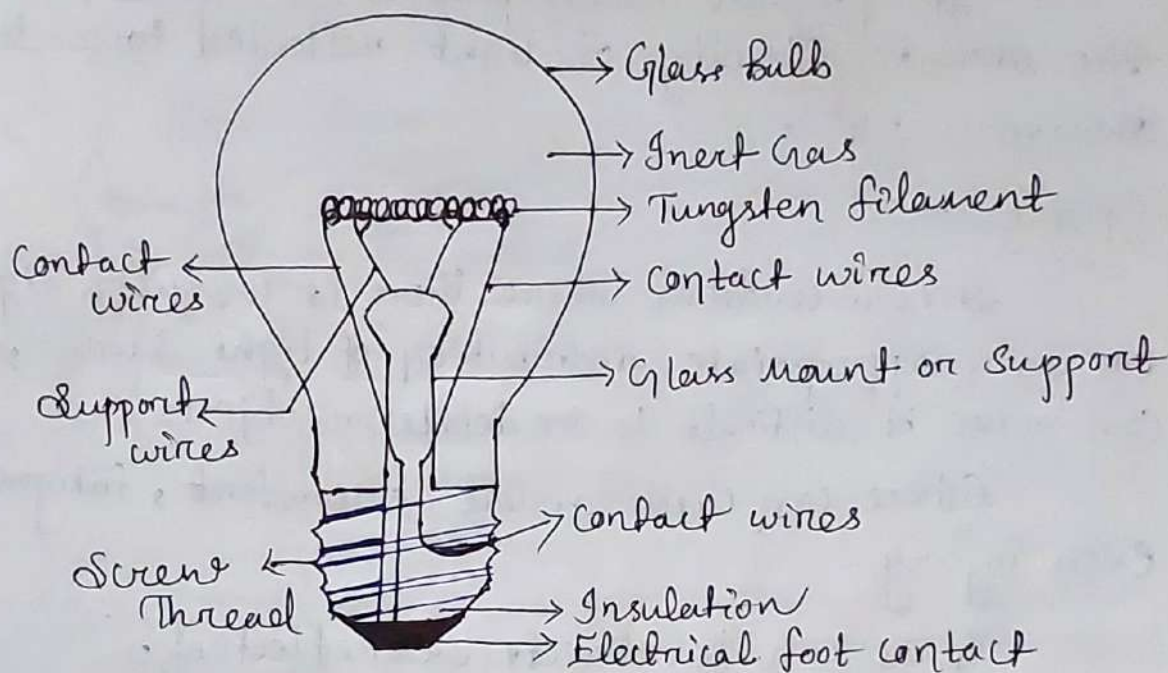 Glass Bulb
Inert Gas
Tungsten filament
Contact
wires
contact wires
Glass Mount or Support
Support
wires
Contact wires
Screw
Thread
Insulation
Electrical foot contact